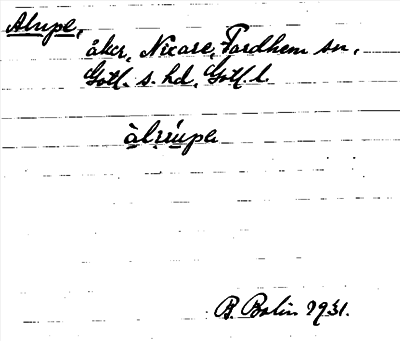 Alrupe,
åker, Nicare, Fardhem sn,
Gotl. s. hd, Gotl. l.
àlrrupa
B. Bolin 1931.